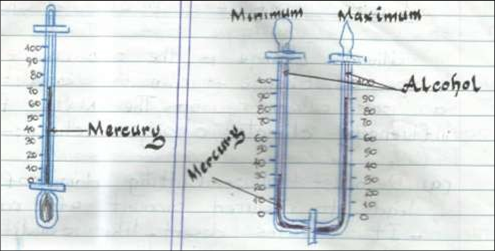 Minimum
Maximum
Alcohol
Mercury
Mercury
100
90
80
70
60
50
40
30
20
10
0
100
90
80
70
60
50
40
30
20
10
0
100
90
80
70
60
50
40
30
20
10
0